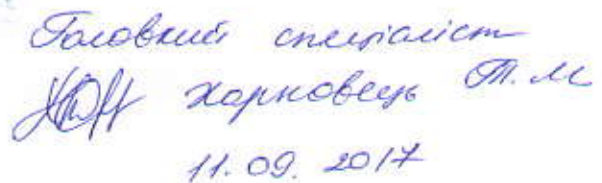 Головний спеціаліст
Харковець Т.М
11.09.2017